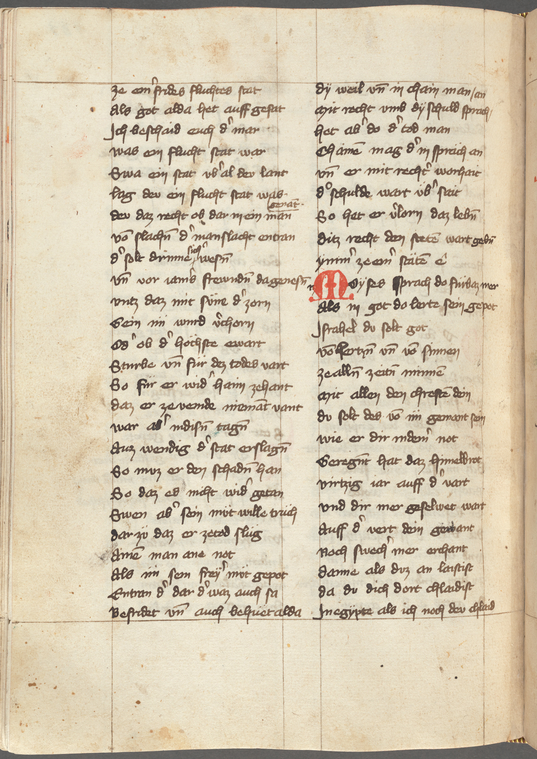 ze einͤ frides fluchtes stat
Als got alda het auff gesat
Ich beschaid euch dͤ mar
was ein flucht stat war
Swa ein stat vbͤ al der lant
lag dev ein flucht stat was genāt
dev daz recht ob dar in ein man
vō slachñ dͤ manslacht entran
dͤ solt drinne sich wesñ
vñ vor iams frewndñ da genesñ
vntz daz mit sune dͤ zorn
Gein im wurd vͤchorn
Odͤ ob dͤ hochste ewart
Sturbe vñ fur dez todes vart
So fur er widͤ haim zehant
daz er ze veinde niemāt vant
war abͤ indisñ tagñ
Auz wendig dͤ stat erslagñ
So muz er den schadñ han
So daz es nicht widͤ getan
Swen abͤ sein mut wille truch
dar zu daz er ze tod slug
Ainē man ane not
Als im sein freyͤ mut gepot
Entran dͤ dar dͤ waz auch sa
Befridet vñ auch behuet alda
dy weil vñ in chain man an
Mit recht vmb dy schuld sprach
het abͤ do dͤ tod man
Chainē mag dͤ in sprach an
vñ er mit recht worhait
dͤ schulde wart vbͤ sait
So het er vͤlorn daz lebñ
Ditz recht den stetē wart gebñ
ze einͤ stätē e
Moyses sprach do furbaz mer
Als in got do lerte sein gepot
Israhel du solt got
võ hertzñ vñ võ sinnen
ze allñ zeitñ minnē
Mit allen den chrefte dein
du solt des võ im gewant sein
wie er dir indeinͤ not
Geregnt hat daz himelbrot
virtzig iar auff dͤ vart
vnd dir mer geselwet wart
Auff dͤ vert dein gewant
Noch swechͤ mer erchant
danne als duz an laitist
da du dich dort chlaidist
In egypte als ich noch dev chlaid